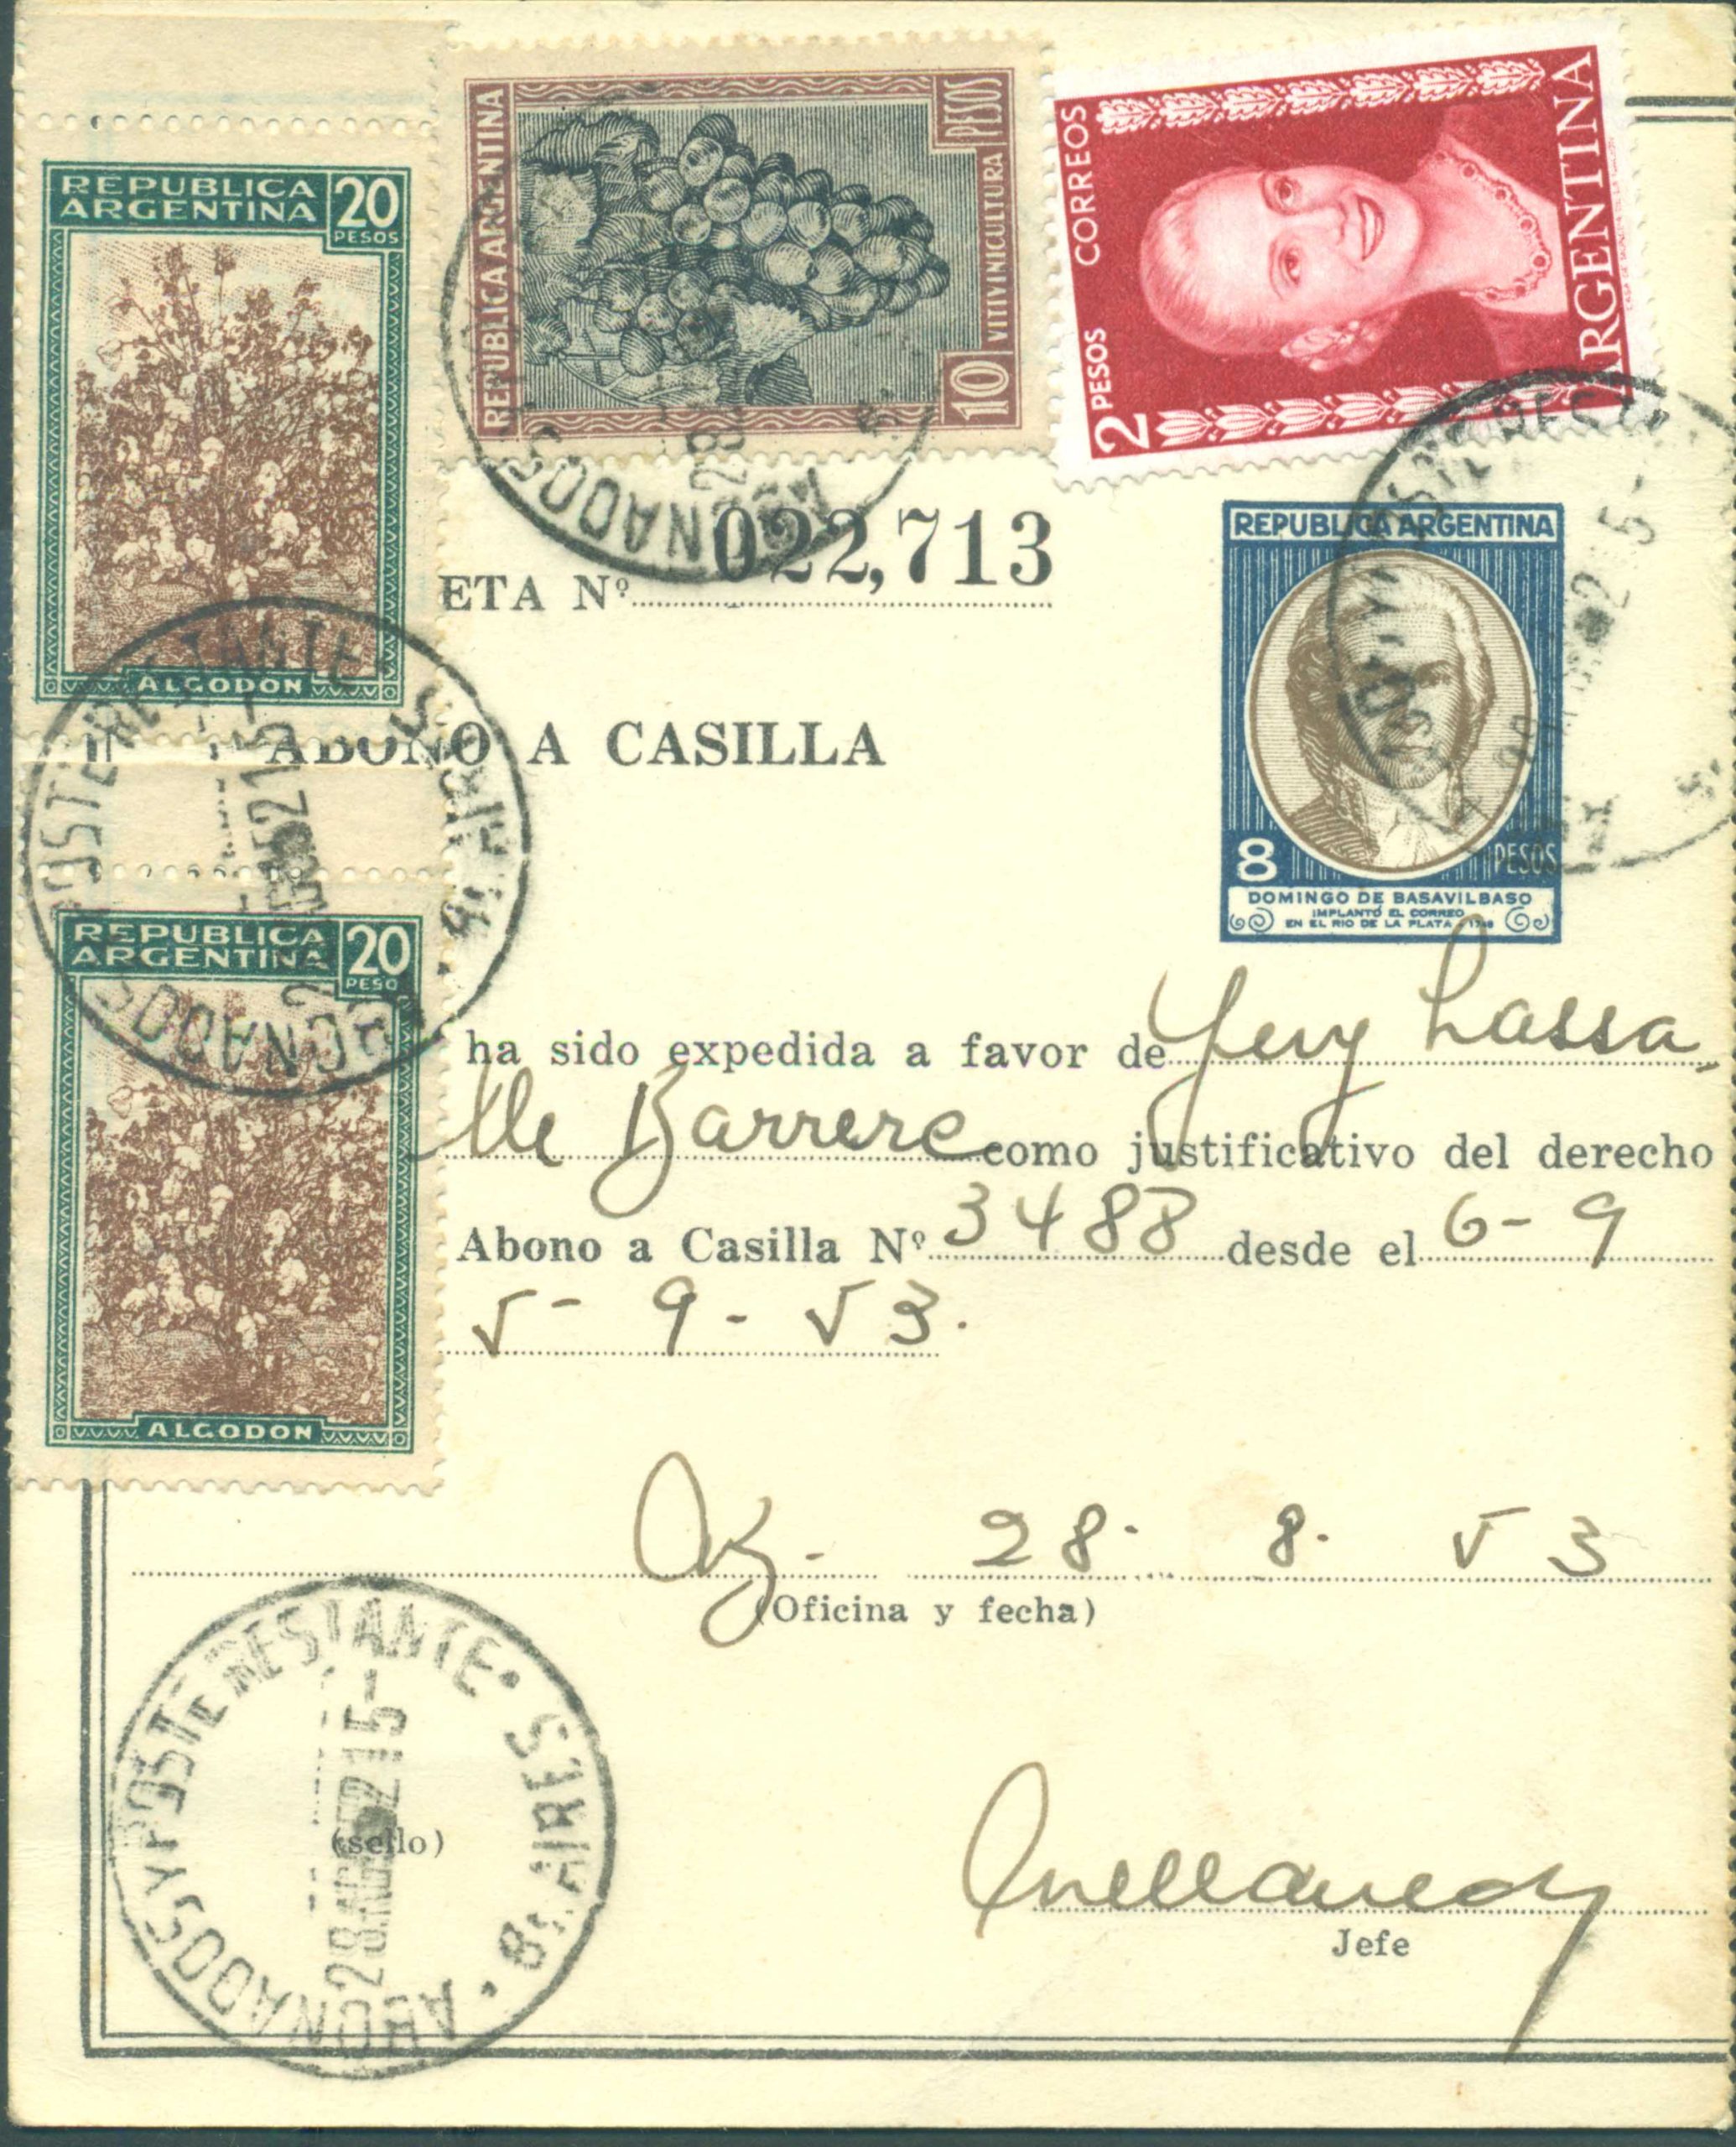 REPUBLICA ARGENTINA 20 PESOS
ALGODON
REPUBLICA ARGENTINA
10 PESOS
VITIVINICULTURA
CORREOS
2 PESOS
ARGENTINA
ETA Nº 022,713
ABONO A CASILLA
REPUBLICA ARGENTINA
8 PESOS
DOMINGO DE BASAVILBASO
IMPLANTÓ EL CORREO
EN EL RIO DE LA PLATA - 1748
REPUBLICA ARGENTINA 20 PESO
ALGODON
ha sido expedida a favor de Yevy Lassa
lle Barrere como justificativo del derecho
Abono a Casilla Nº 3488 desde el 6-9
5-9-53.
28. 8. 53
(Oficina y fecha)
ABONADOS Y POSTE RESTANTE • Bs. AIRES •
28 AGO 52 15-
(sello)
Avellaneda
Jefe